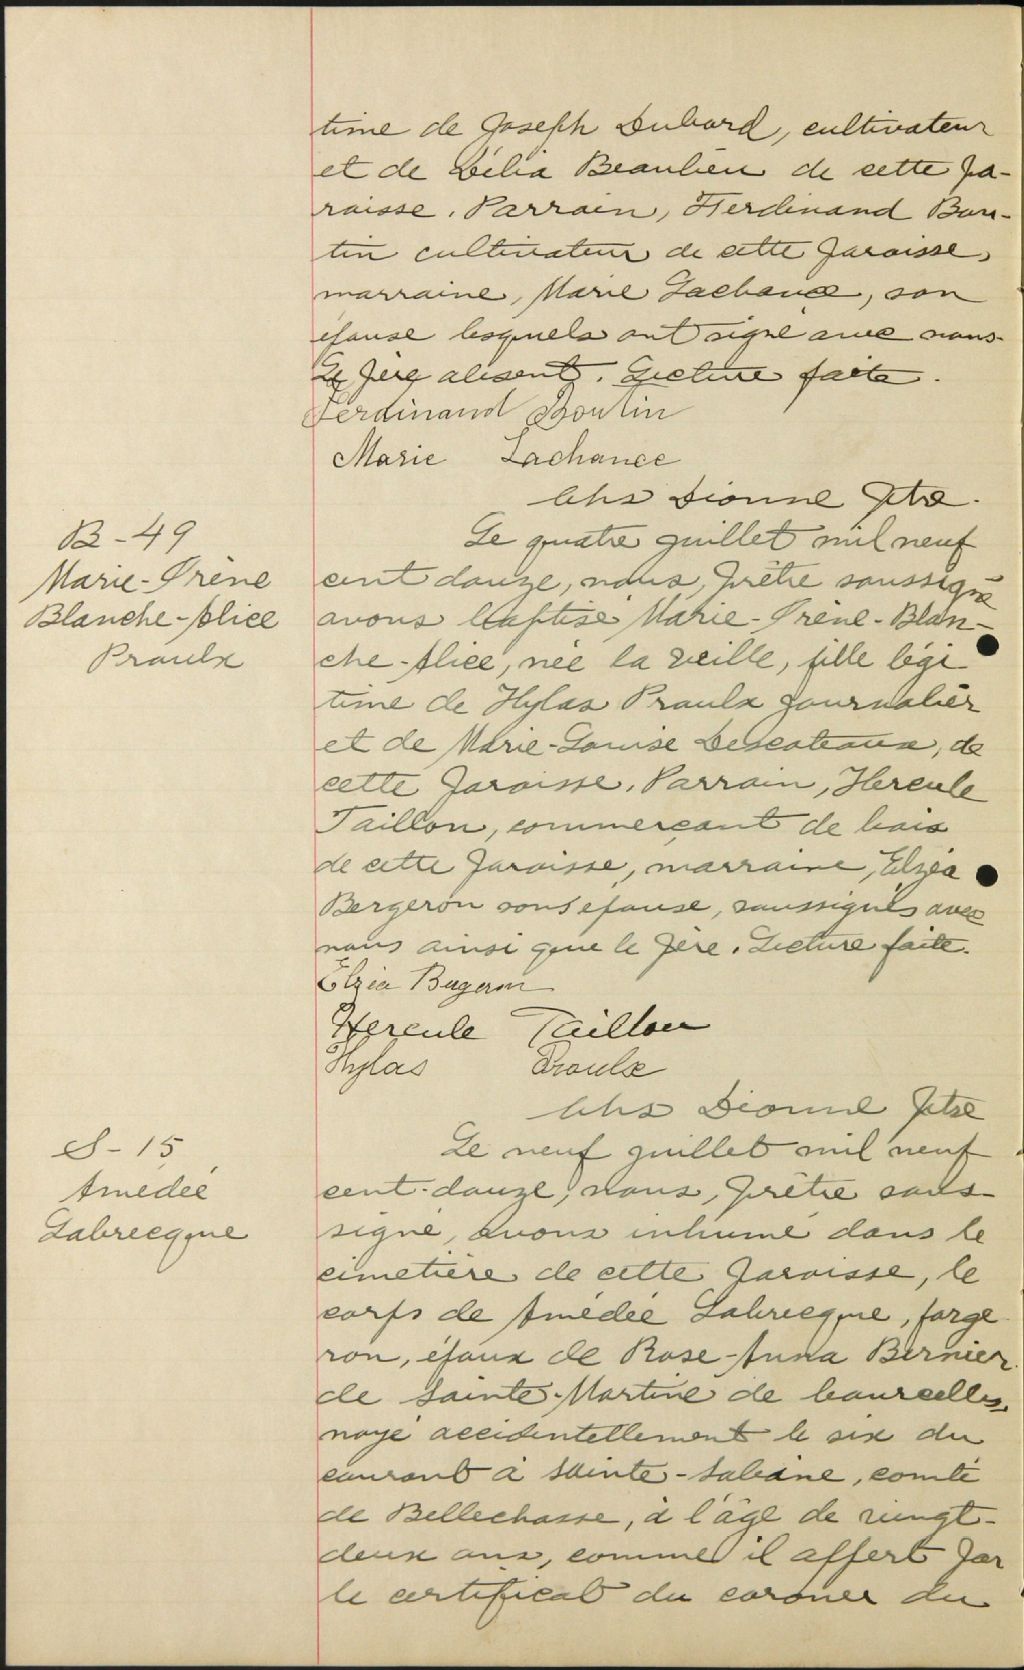 time de Joseph Dubord, cultivateur
et de Délia Beaulieu de cette pa-
roisse. Parrain, Ferdinand Bou-
tin cultivateur de cette paroisse,
marraine, Marie Lachance, son
épouse lesquels ont signé avec nous.
Le père absent. Lecture faite.
Ferdinand Boutin
Marie Lachance
Chs Dionne Ptre.
B-49
Marie-Irène
Blanche-Alice
Proulx
Le quatre juillet mil neuf
cent douze, nous, prêtre soussigné
avons baptisé Marie-Irène-Blan-
che-Alice, née la veille, fille légi-
time de Hylas Proulx journalier
et de Marie-Louise Descoteaux, de
cette paroisse. Parrain, Hercule
Taillon, commerçant de bois
de cette paroisse, marraine, Elzéa
Bergeron son épouse, soussignés avec
nous ainsi que le père. Lecture faite.
Elzéa Bergeron
Hercule Taillon
Hylas Proulx
Chs Dionne Ptre
S-15
Amédée
Labrecque
Le neuf juillet mil neuf
cent-douze, nous, prêtre sous-
signé, avons inhumé dans le
cimetière de cette paroisse, le
corps de Amédée Labrecque, forge-
ron, époux de Rose-Anna Bernier
de Sainte-Martine de Courcelles,
noyé accidentellement le six du
courant à Sainte-Sabine, comté
de Bellechasse, à l'âge de vingt-
deux ans, comme il appert par
le certificat du coroner du